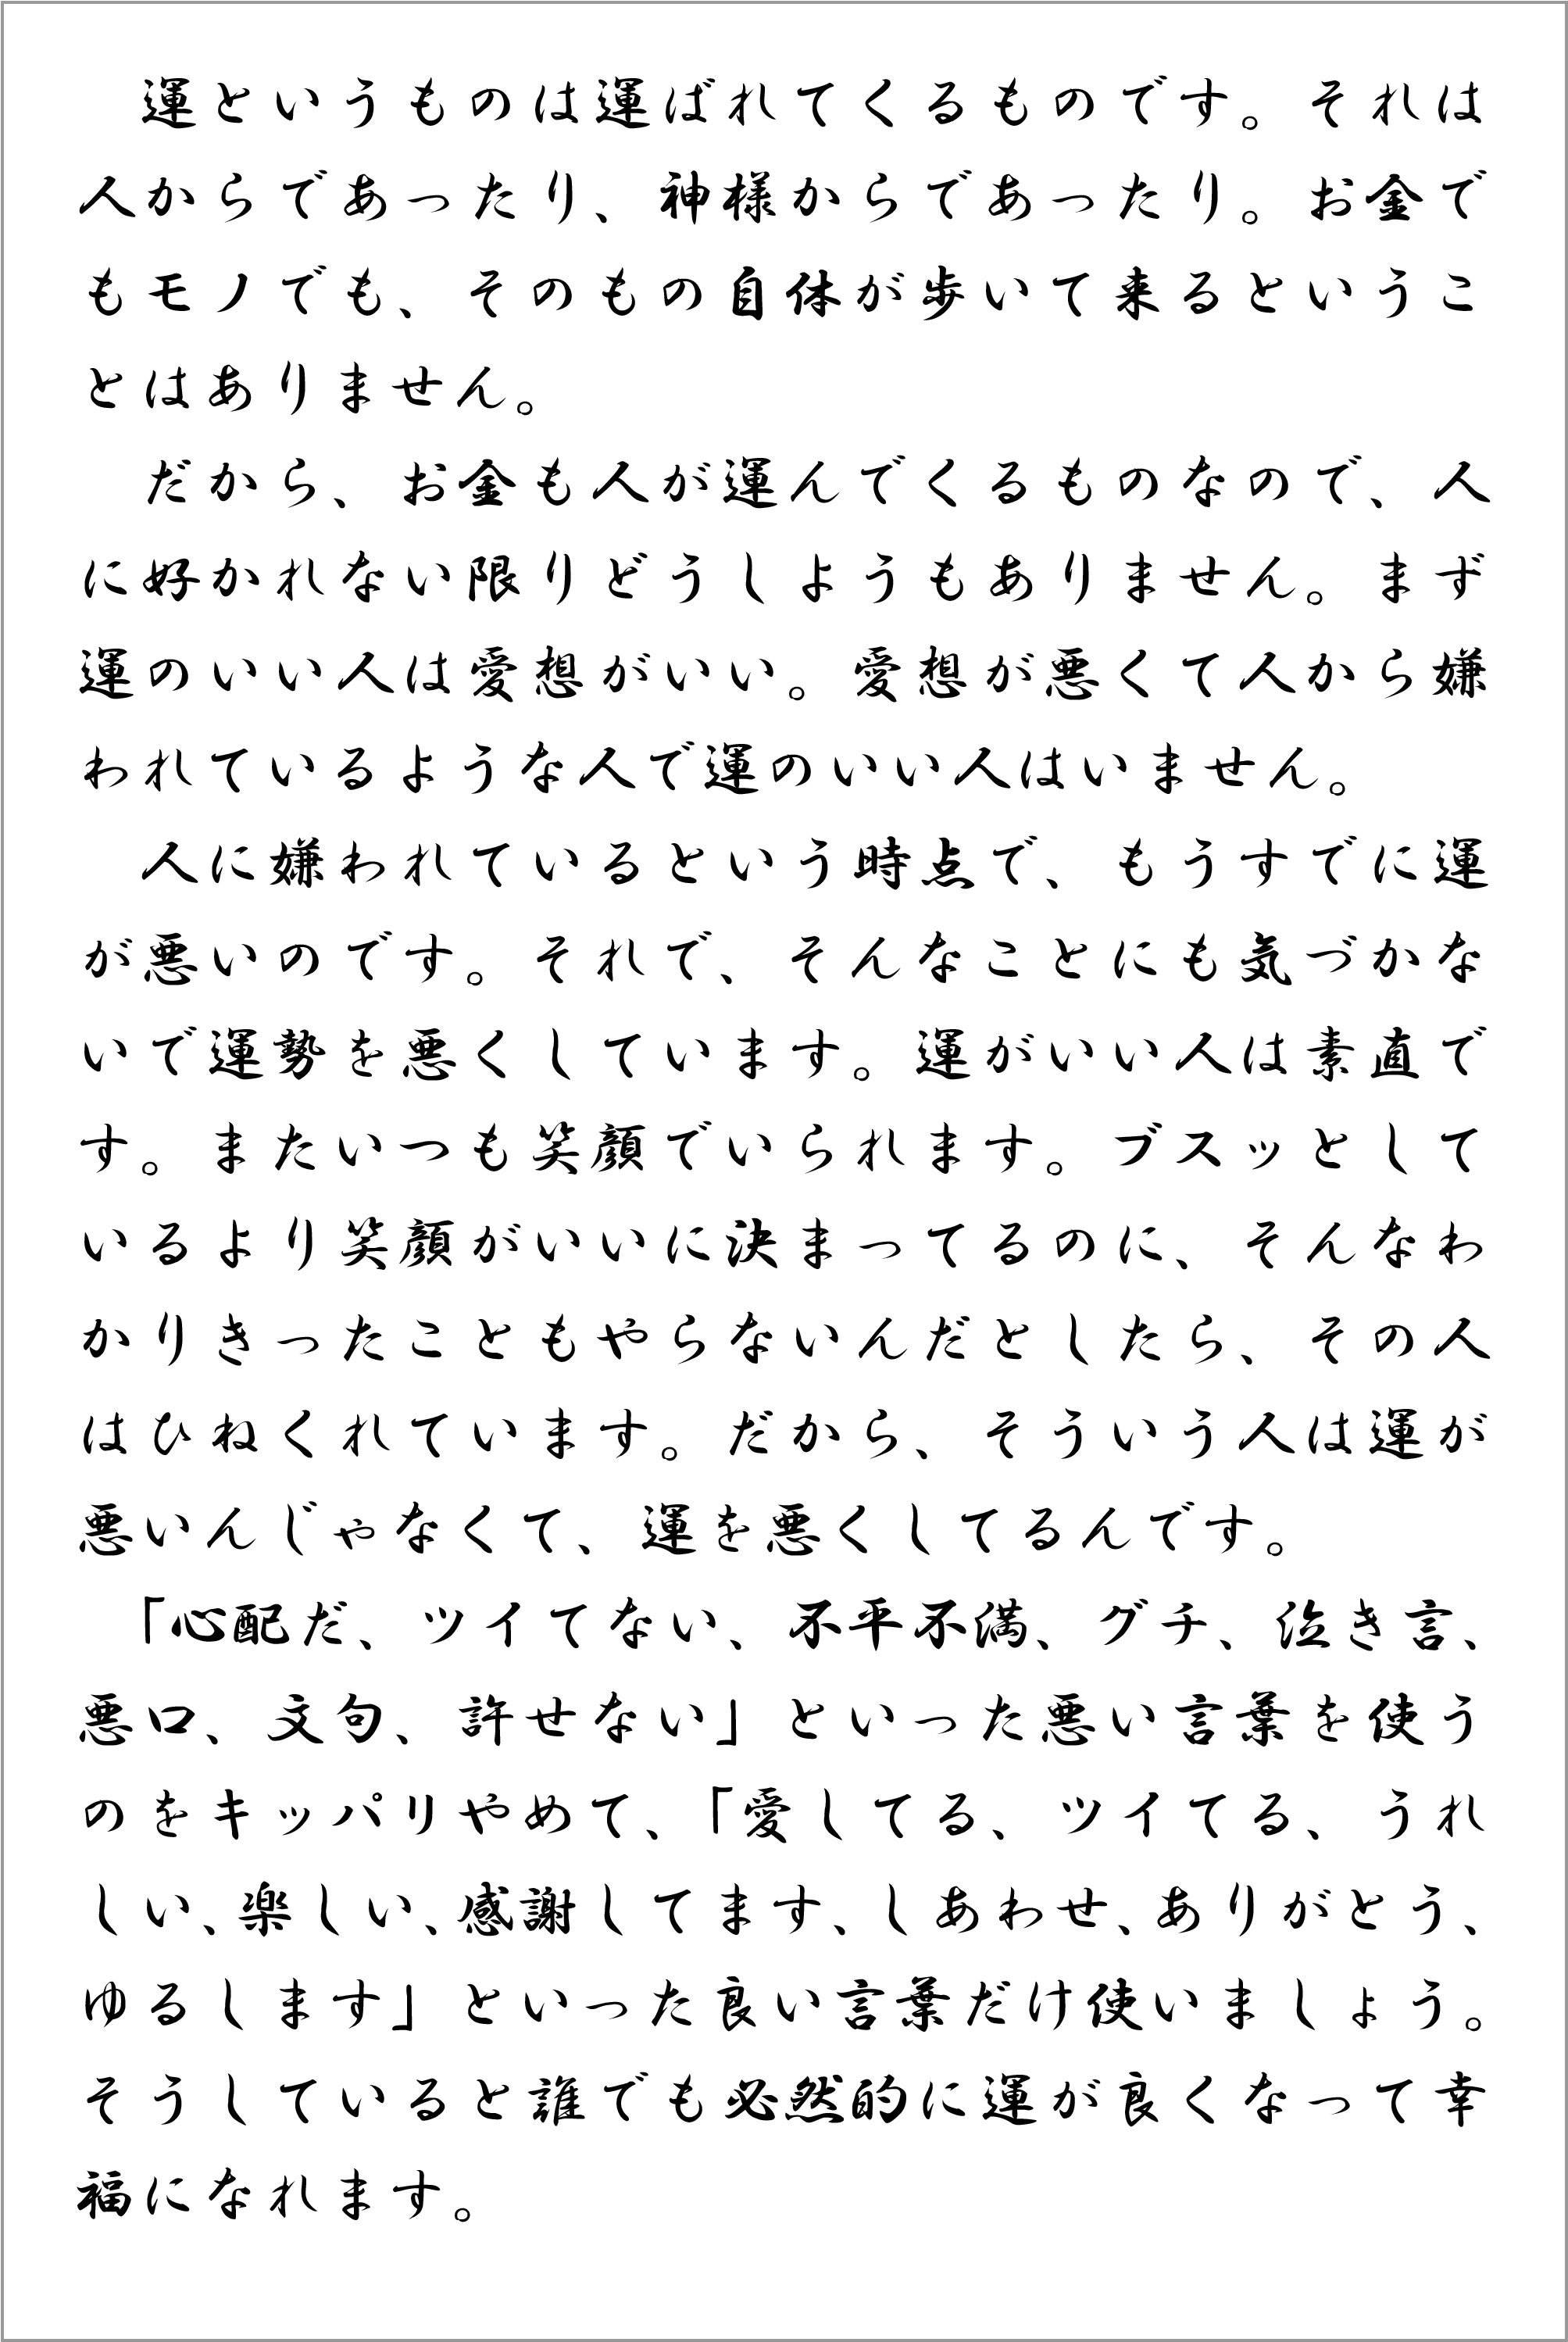 運というものは運ばれてくるものです。それは
人からであったり、神様からであったり。お金で
もモノでも、そのもの自体が歩いて来るというこ
とはありません。
　だから、お金も人が運んでくるものなので、人
に好かれない限りどうしようもありません。まず
運のいい人は愛想がいい。愛想が悪くて人から嫌
われているような人で運のいい人はいません。
　人に嫌われているという時点で、もうすでに運
が悪いのです。それで、そんなことにも気づかな
いで運勢を悪くしています。運がいい人は素直で
す。またいつも笑顔でいられます。ブスッとして
いるより笑顔がいいに決まってるのに、そんなわ
かりきったこともやらないんだとしたら、その人
はひねくれています。だから、そういう人は運が
悪いんじゃなくて、運を悪くしてるんです。
　「心配だ、ツイてない、不平不満、グチ、泣き言、
悪口、文句、許せない」といった悪い言葉を使う
のをキッパリやめて、「愛してる、ツイてる、うれ
しい、楽しい、感謝してます、しあわせ、ありがとう、
ゆるします」といった良い言葉だけ使いましょう。
そうしていると誰でも必然的に運が良くなって幸
福になれます。